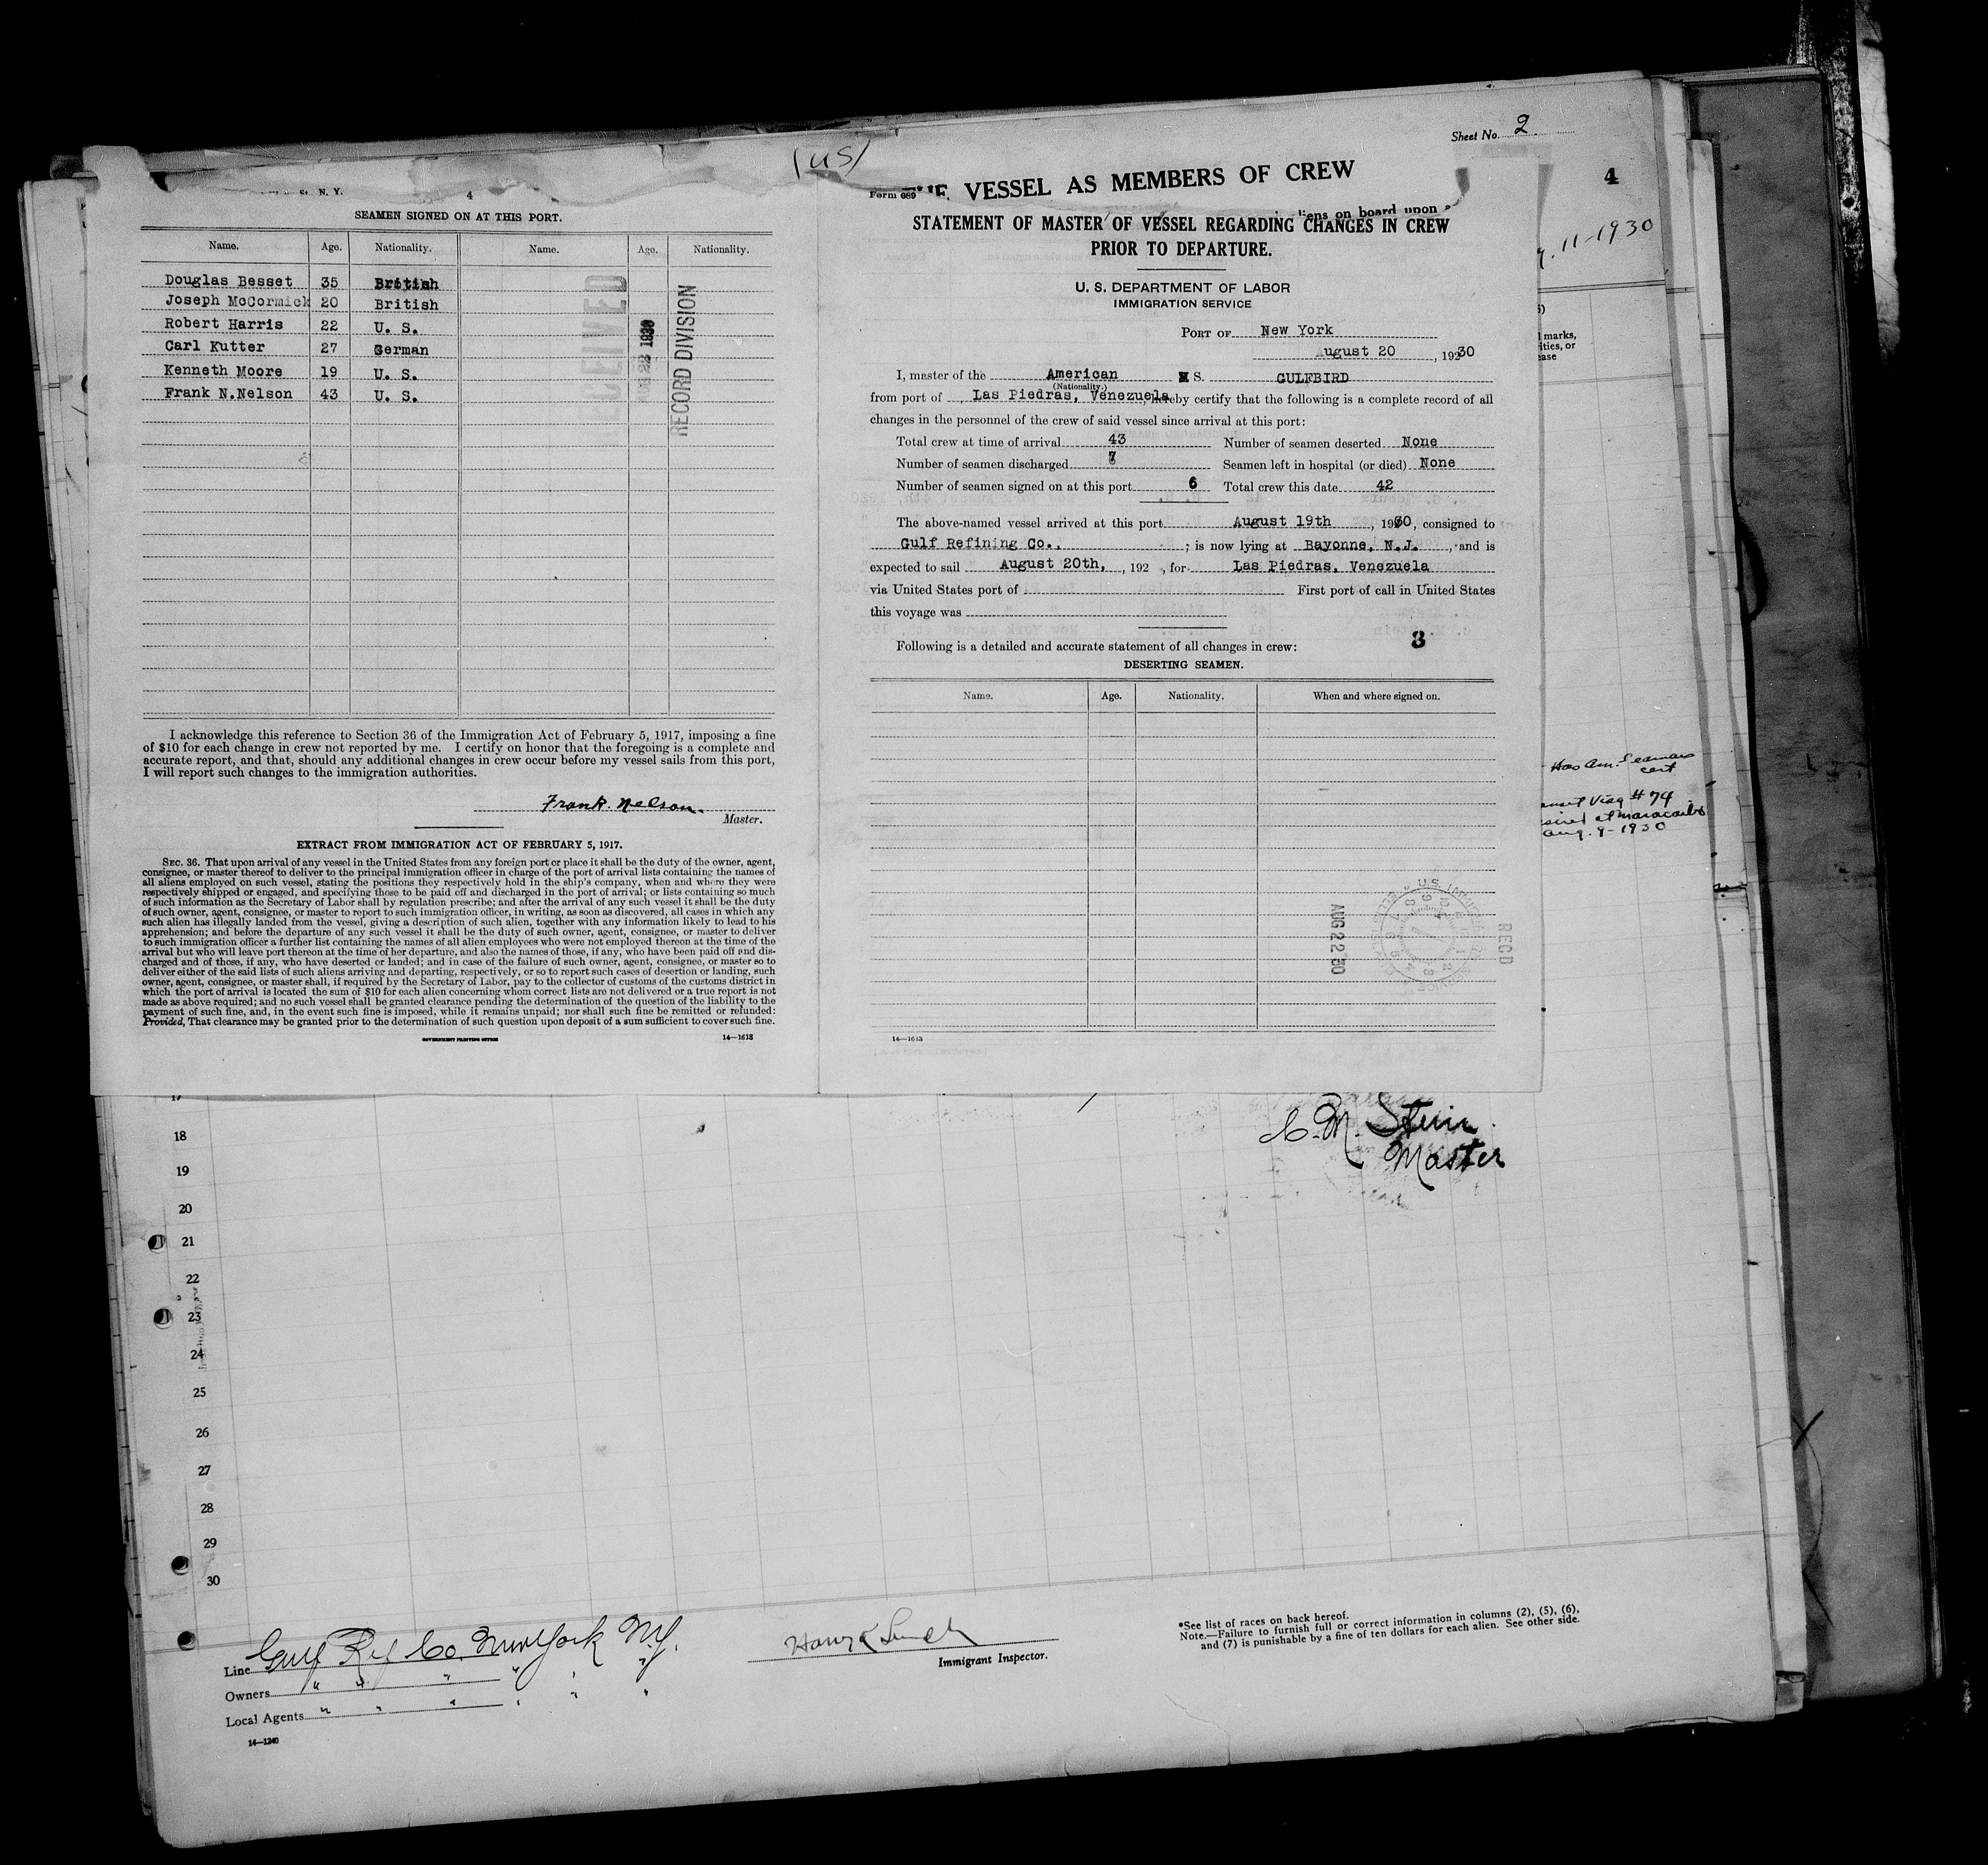 Sheet No. 2
(US)
VESSEL AS MEMBERS OF CREW
4
11-1930
St. N. Y.
4
SEAMEN SIGNED ON AT THIS PORT.
Name. Age. Nationality. Name. Age. Nationality.
Douglas Besset 35 British
Joseph McCormick 20 British
Robert Harris 22 U. S.
Carl Kutter 27 German
Kenneth Moore 19 U. S.
Frank N.Nelson 43 U. S.
RECEIVED
AUG 22 1930
RECORD DIVISION
I acknowledge this reference to Section 36 of the Immigration Act of February 5, 1917, imposing a fine
of $10 for each change in crew not reported by me. I certify on honor that the foregoing is a complete and
accurate report, and that, should any additional changes in crew occur before my vessel sails from this port,
I will report such changes to the immigration authorities.
Frank. Nelson.
Master.
EXTRACT FROM IMMIGRATION ACT OF FEBRUARY 5, 1917.
SEC. 36. That upon arrival of any vessel in the United States from any foreign port or place it shall be the duty of the owner, agent,
consignee, or master thereof to deliver to the principal immigration officer in charge of the port of arrival lists containing the names of
all aliens employed on such vessel, stating the positions they respectively hold in the ship's company, when and where they were
respectively shipped or engaged, and specifying those to be paid off and discharged in the port of arrival; or lists containing so much
of such information as the Secretary of Labor shall by regulation prescribe; and after the arrival of any such vessel it shall be the duty
of such owner, agent, consignee, or master to report to such immigration officer, in writing, as soon as discovered, all cases in which any
such alien has illegally landed from the vessel, giving a description of such alien, together with any information likely to lead to his
apprehension; and before the departure of any such vessel it shall be the duty of such owner, agent, consignee, or master to deliver
to such immigration officer a further list containing the names of all alien employees who were not employed thereon at the time of the
arrival but who will leave port thereon at the time of her departure, and also the names of those, if any, who have been paid off and dis-
charged and of those, if any, who have deserted or landed; and in case of the failure of such owner, agent, consignee, or master so to
deliver either of the said lists of such aliens arriving and departing, respectively, or so to report such cases of desertion or landing, such
owner, agent, consignee, or master shall, if required by the Secretary of Labor, pay to the collector of customs of the customs district in
which the port of arrival is located the sum of $10 for each alien concerning whom correct lists are not delivered or a true report is not
made as above required; and no such vessel shall be granted clearance pending the determination of the question of the liability to the
payment of such fine, and, in the event such fine is imposed, while it remains unpaid; nor shall such fine be remitted or refunded:
Provided, That clearance may be granted prior to the determination of such question upon deposit of a sum sufficient to cover such fine.
GOVERNMENT PRINTING OFFICE 14—1613
Form 689
liens on board upon
STATEMENT OF MASTER OF VESSEL REGARDING CHANGES IN CREW
PRIOR TO DEPARTURE.
U. S. DEPARTMENT OF LABOR
IMMIGRATION SERVICE
PORT OF New York
August 20, 1930
I, master of the American M S. GULFBIRD
(Nationality.)
from port of Las Piedras, Venezuela hereby certify that the following is a complete record of all
changes in the personnel of the crew of said vessel since arrival at this port:
Total crew at time of arrival 43 Number of seamen deserted None
Number of seamen discharged 7 Seamen left in hospital (or died) None
Number of seamen signed on at this port 6 Total crew this date 42
The above-named vessel arrived at this port August 19th, 1930, consigned to
Gulf Refining Co., ; is now lying at Bayonne, N.J. , and is
expected to sail August 20th, , 192 , for Las Piedras, Venezuela
via United States port of First port of call in United States
this voyage was
3
Following is a detailed and accurate statement of all changes in crew:
DESERTING SEAMEN.
Name. Age. Nationality. When and where signed on.
AUG 22 30
REC'D
14—1613
marks,
ities, or
ease
Has Am. Seamans
cert
Visa # 74
at Maracaibo
Aug. 9-1930
C. M. Stein.
Master
17
18
19
20
21
22
23
24
25
26
27
28
29
30
Line Gulf Ref Co. New York N.Y.
Owners " " " " " "
Local Agents " " " " " "
14—1240
Immigrant Inspector.
*See list of races on back hereof.
Note.—Failure to furnish full or correct information in columns (2), (5), (6),
and (7) is punishable by a fine of ten dollars for each alien. See other side.